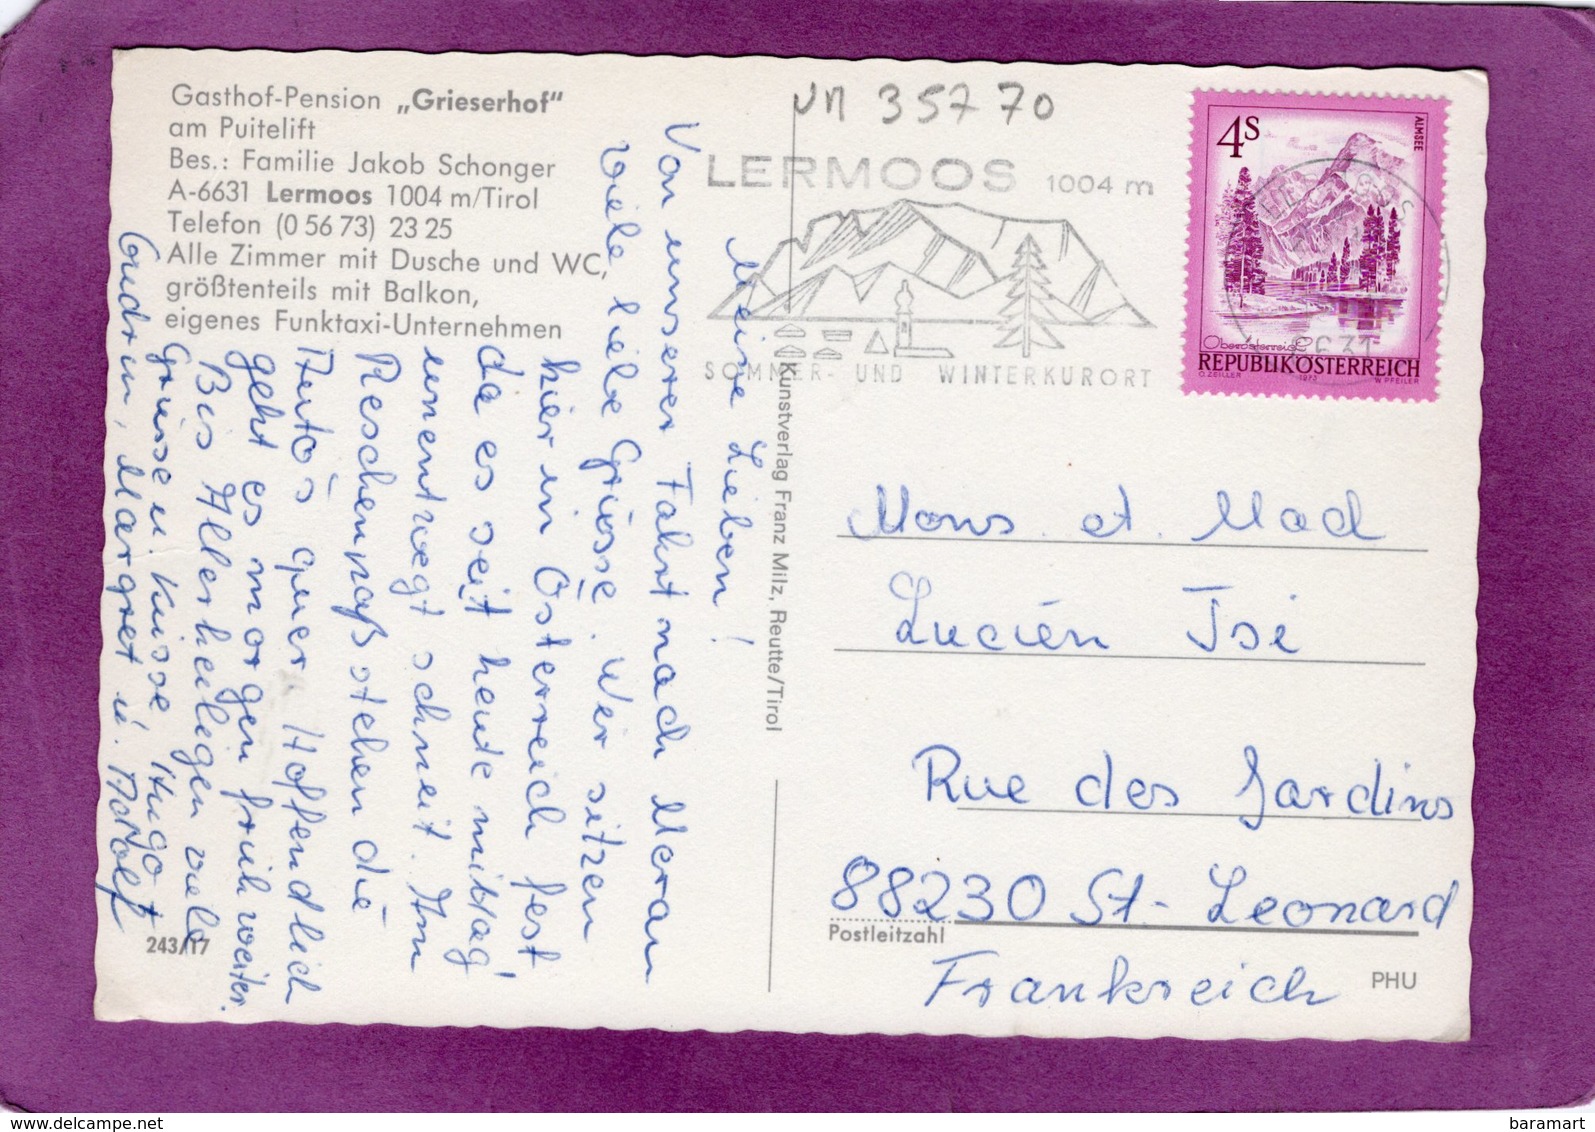 Gasthof-Pension „Grieserhof"
am Puitelift
Bes.: Familie Jakob Schonger
A-6631 Lermoos 1004 m/Tirol
Telefon (0 56 73) 23 25
Alle Zimmer mit Dusche und WC,
größtenteils mit Balkon,
eigenes Funktaxi-Unternehmen
Meine Lieben!
Von unserer Fahrt nach Meran
viele liebe Grüsse. Wir sitzen
hier in Österreich fest
da es seit heute mittag
unentwegt schneit. Am
Reschenpaß stehen die
Autos quer. Hoffentlich
geht es morgen früh weiter.
Bis Allerheiligen viele
Grüsse u. Küsse Hugo +
Gudrun, Margret u. Adolf
243/17
Kunstverlag Franz Milz, Reutte/Tirol
35770
LERMOOS 1004 m
SOMMER- UND WINTERKURORT
4S
ALMSEE
Oberösterreich
REPUBLIK ÖSTERREICH
O. ZEILLER 1973 W. PFEILER
6631
Mons. et. Mad
Lucién Isi
Rue des Jardins
88230 St-Leonard
Postleitzahl
Frankreich
PHU
www.delcampe.net
baramart